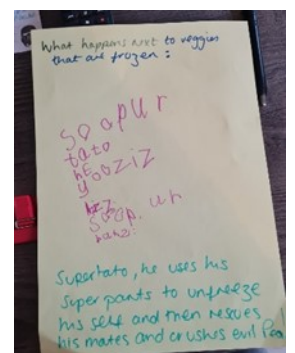 What happens next to veggies
that are frozen :
soopur
tato
hE
yooziz
hiz
Soop. ur
Supertato, he uses his
super pants to unfreeze
his self and then rescues
his mates and crushes evil Pea!